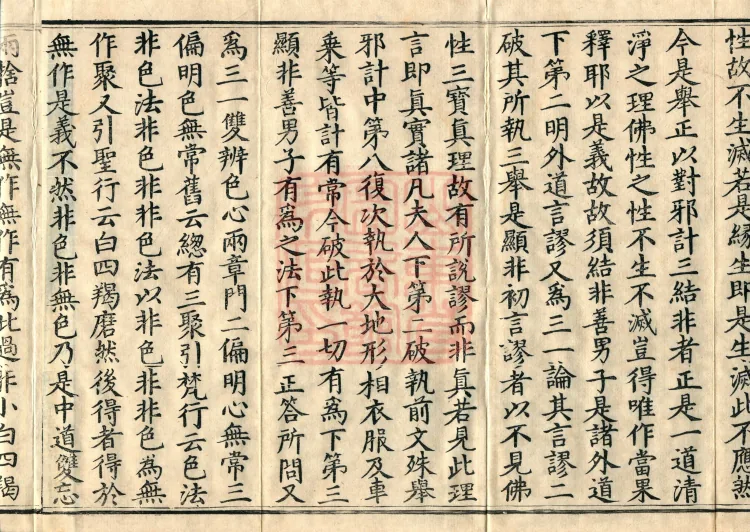 性故不生滅若是縁生即是生滅此不應然
今是舉正以對邪計三結非者正是一道清
淨之理佛性之性不生不滅豈得唯作當果
釋耶以是義故故須結非善男子是諸外道
下第二明外道言謬又為三一論其言謬二
破其所執三舉是顯非初言謬者以不見佛
性三寳真理故有所說謬而非真若見此理
言即真實諸凡夫人下第二破執前文殊舉
邪計中第八復次執於大地形相衣服及車
乗等皆計有常今破此執一切有為下第三
顯非善男子有為之法下第三正答所問又
為三一雙辨色心兩章門二偏明心無常三
偏明色無常舊云緫有三聚引梵行云色法
非色法非色非非色法以非色非非色為無
作聚又引聖行云白四羯磨然後得者得於
無作是義不然非色非無色乃是中道雙忘
兩捨豈是無作無作有為此過非小白四羯